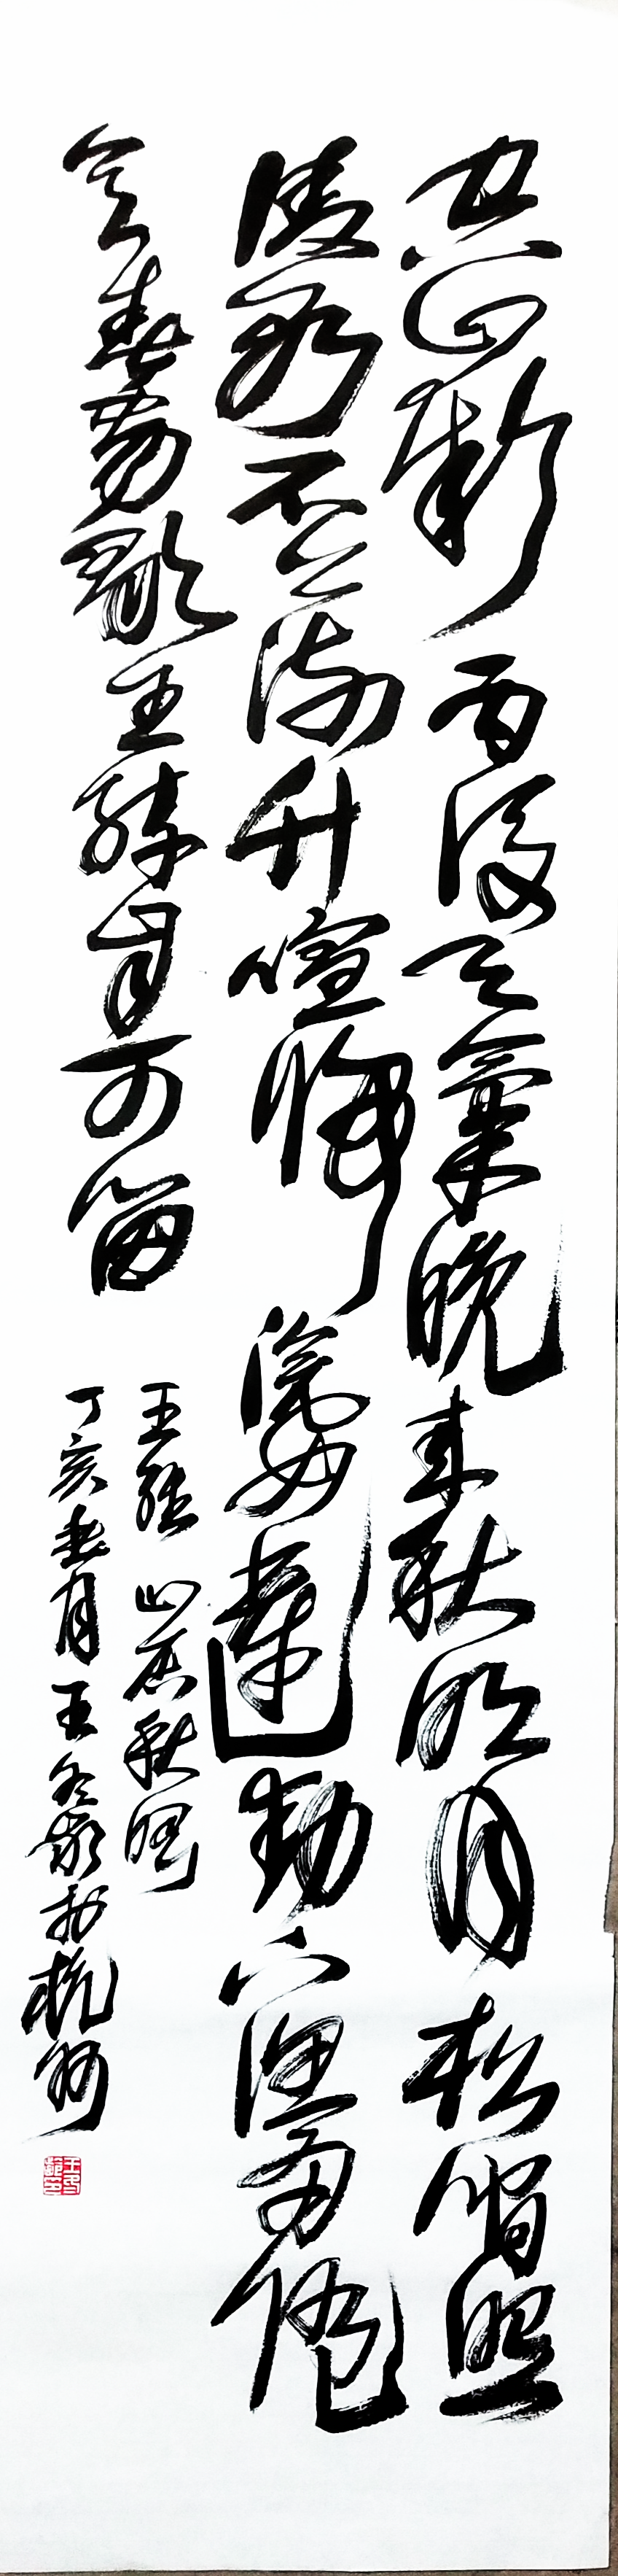 空山新雨後天氣晚来秋明月松間照
清泉石上流竹喧歸浣女蓮動下漁舟随
意春芳歇王孫自可留
王維 山居秋暝
丁亥春月王冬齡於杭州